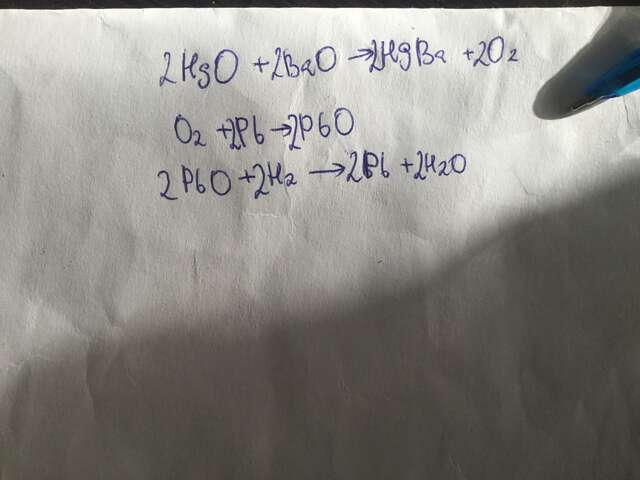 2HgO + 2BaO → 2HgBa + 2O₂
O₂ + 2Pb → 2PbO
2PbO + 2H₂ → 2Pb + 2H₂O